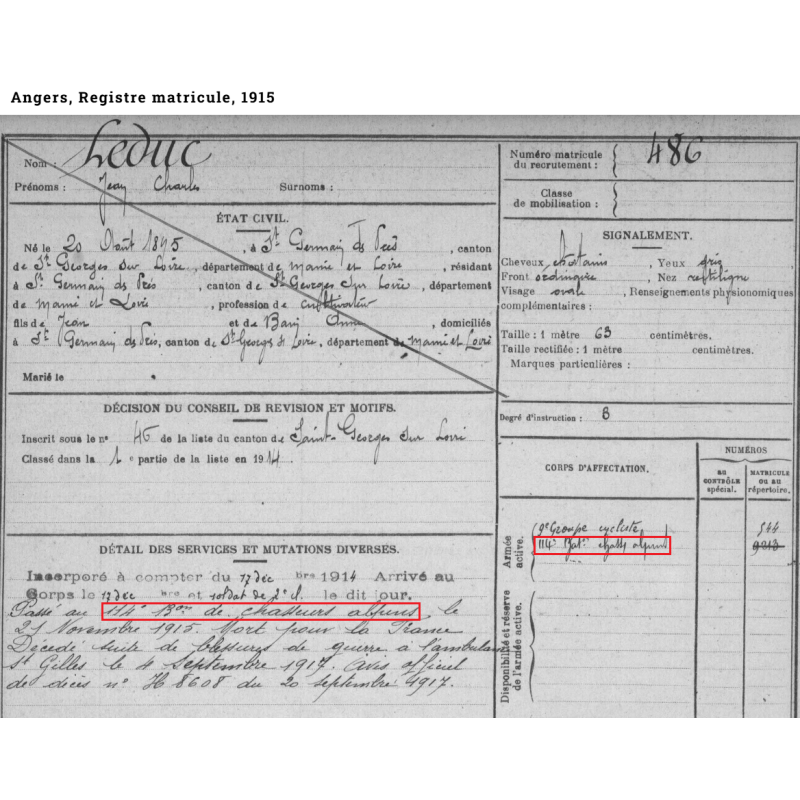 Angers, Registre matricule, 1915
Nom : Leduc
Prénoms : Jean Charles Surnoms :
ÉTAT CIVIL.
Né le 20 Août 1895, à St Germain des Prés, canton
de St Georges sur Loire, département de Maine et Loire, résidant
à St Germain des Prés, canton de St Georges sur Loire, département
de Maine et Loire, profession de cultivateur
fils de Jean et de Anne, domiciliés
à St Germain des Prés, canton de St Georges s Loire, département de Maine et Loire
Marié le
DÉCISION DU CONSEIL DE REVISION ET MOTIFS.
Inscrit sous le no 46 de la liste du canton de Saint-Georges sur Loire
Classé dans la 1e partie de la liste en 1914.
DÉTAIL DES SERVICES ET MUTATIONS DIVERSES.
Incorporé à compter du 17 déc bre 1914 Arrivé au
Corps le 17 déc bre et soldat de 2e cl. le dit jour.
Passé au 114e Bon de chasseurs alpins le
21 Novembre 1915. Mort pour la France
Décédé suite de blessures de guerre à l'ambulance
St Gilles le 4 septembre 1917. Avis officiel
de décès no H 8608 du 20 septembre 1917.
Numéro matricule du recrutement : 486
Classe de mobilisation :
SIGNALEMENT.
Cheveux chatains, Yeux gris
Front ordinaire, Nez rectiligne
Visage ovale, Renseignements physionomiques
complémentaires :
Taille : 1 mètre 63 centimètres.
Taille rectifiée : 1 mètre centimètres.
Marques particulières :
Degré d'instruction : 3
CORPS D'AFFECTATION.
NUMÉROS
AU CONTRÔLE spécial.
MATRICULE OU AU répertoire.
Armée active.
9e Groupe cycliste 544
114e Bat. chass alpins
Disponibilité et réserve de l'armée active.